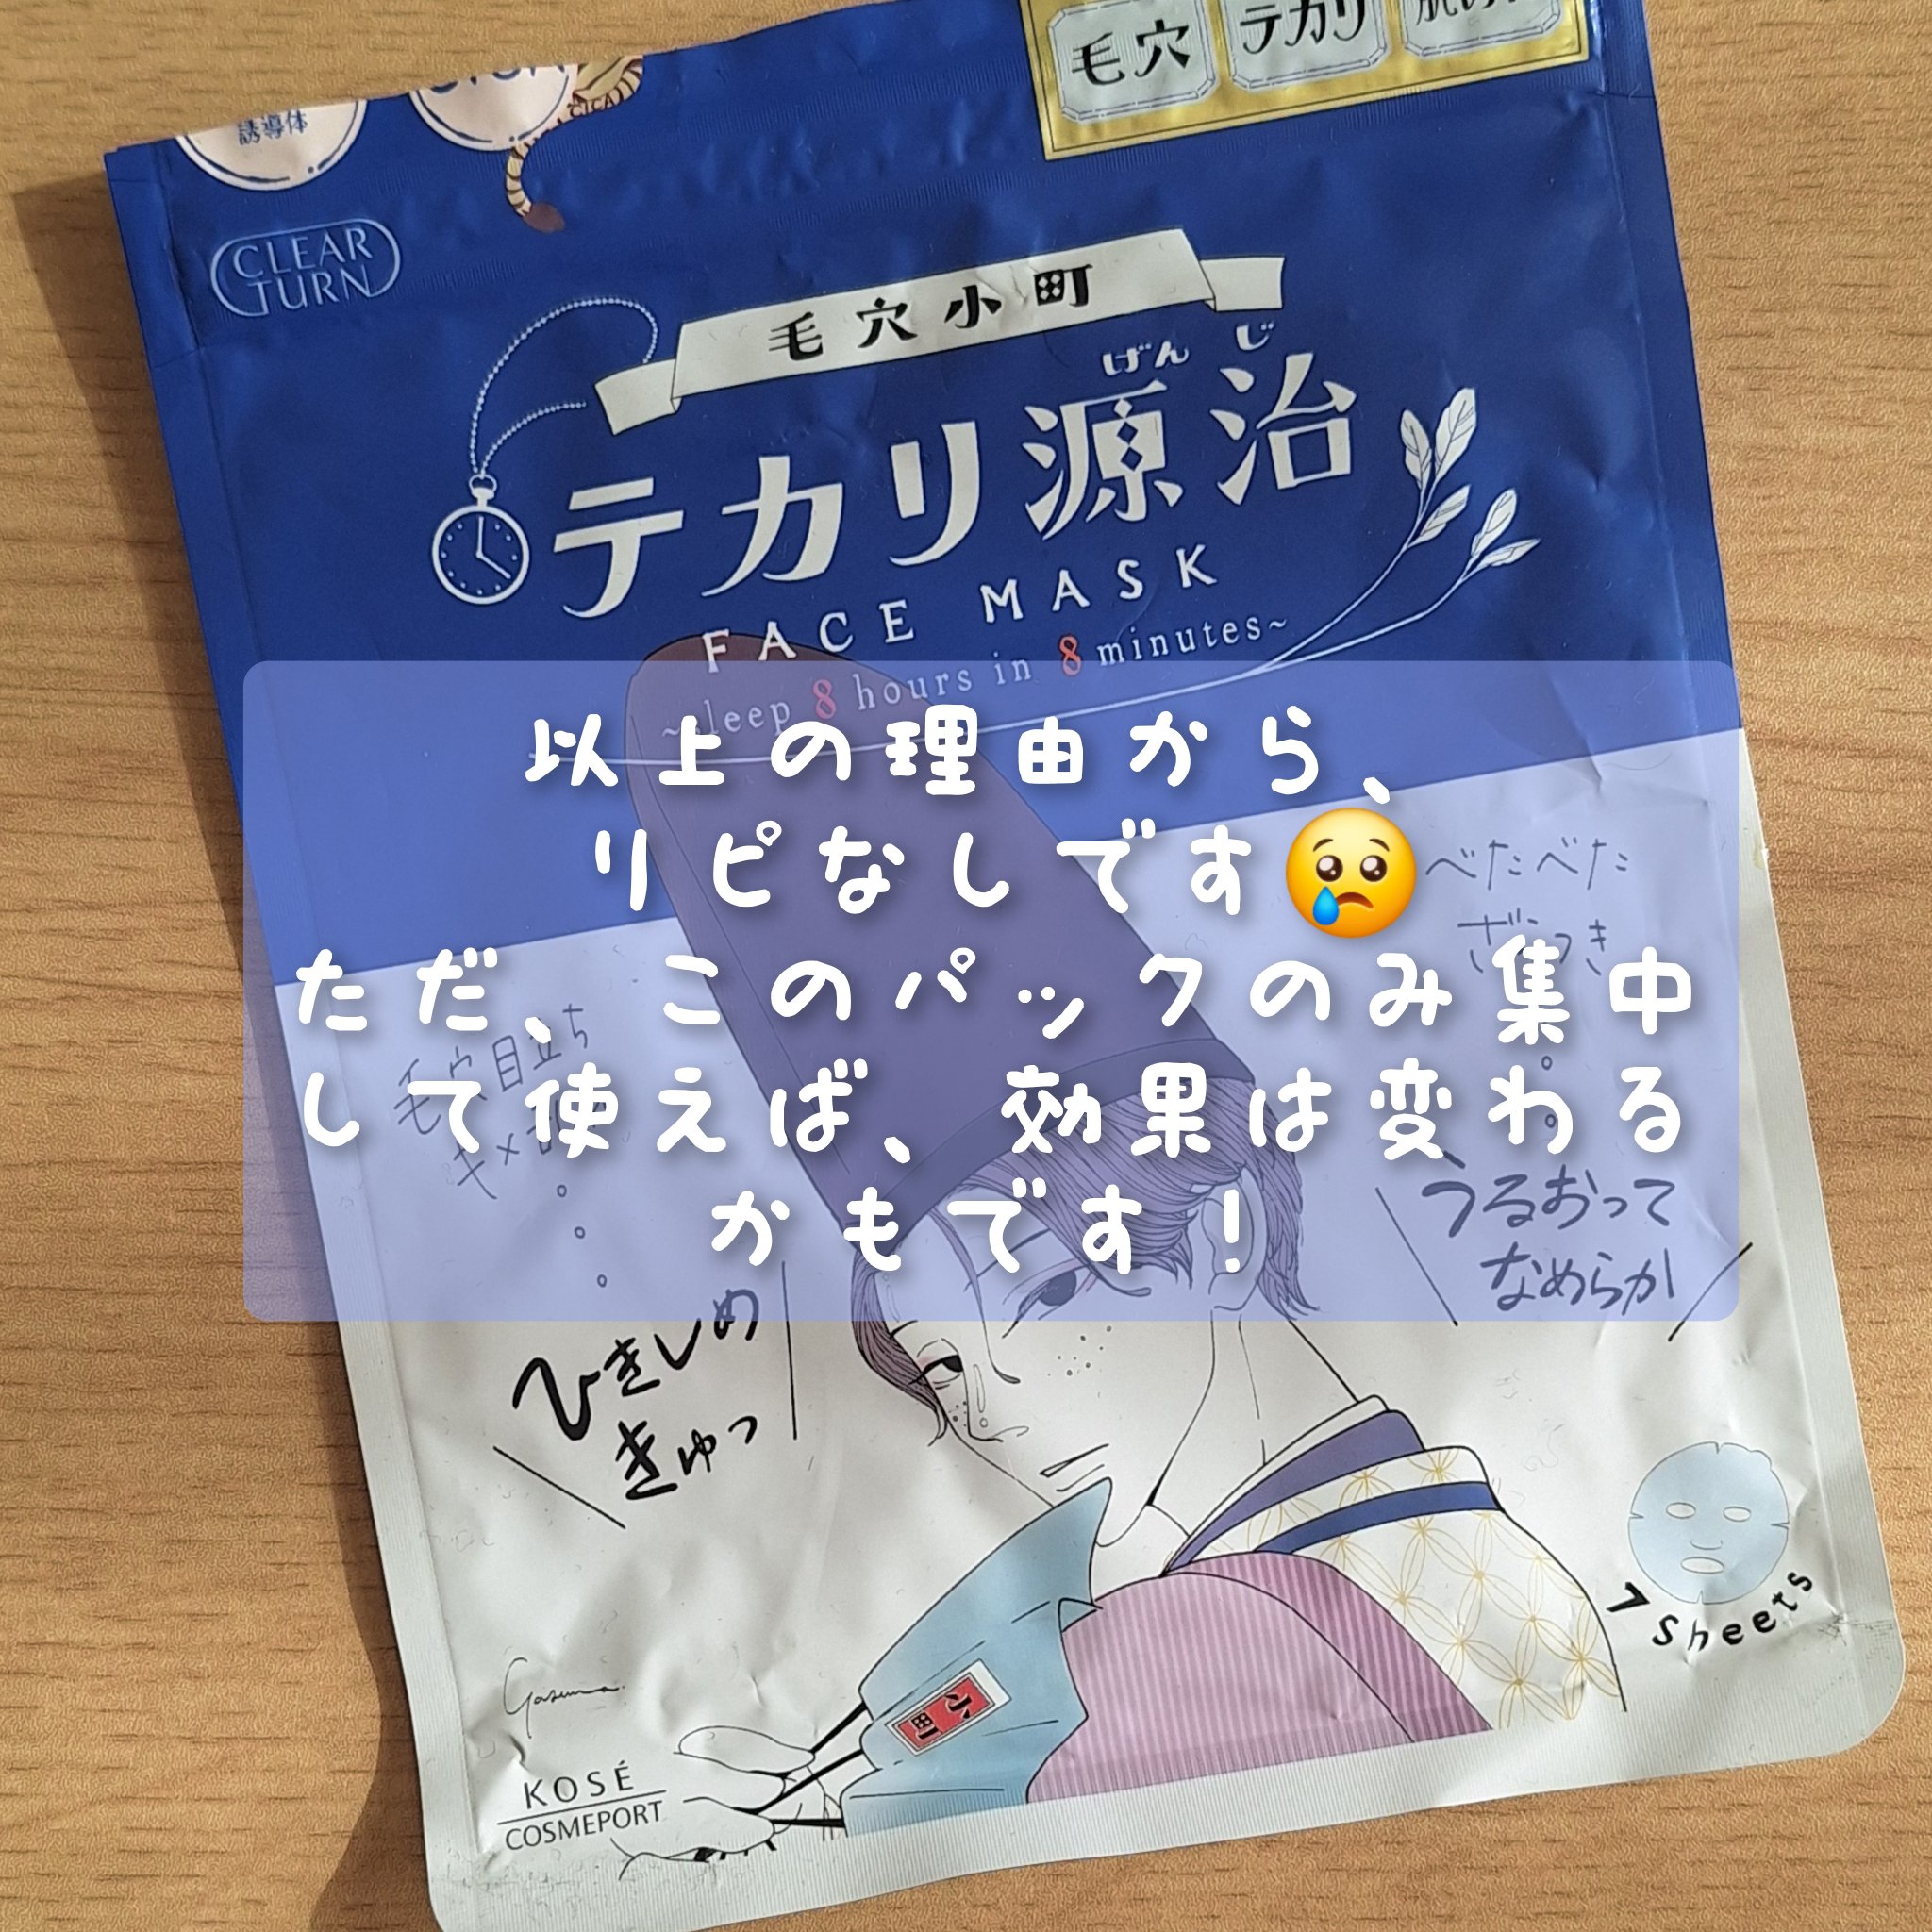 誘導体
CICA
毛穴
テカリ
CLEAR
TURN
毛穴小町
げんじ
テカリ源治
FACE MASK
~sleep 8 hours in 8 minutes~
以上の理由から、
リピなしです😢
ただ、このパックのみ集中
して使えば、効果は変わる
かもです！
べたべた
ざらつき
毛穴目立ち
うるおって
なめらか
ひきしめ
きゅっ
7 Sheets
小町
KOSÉ
COSMEPORT